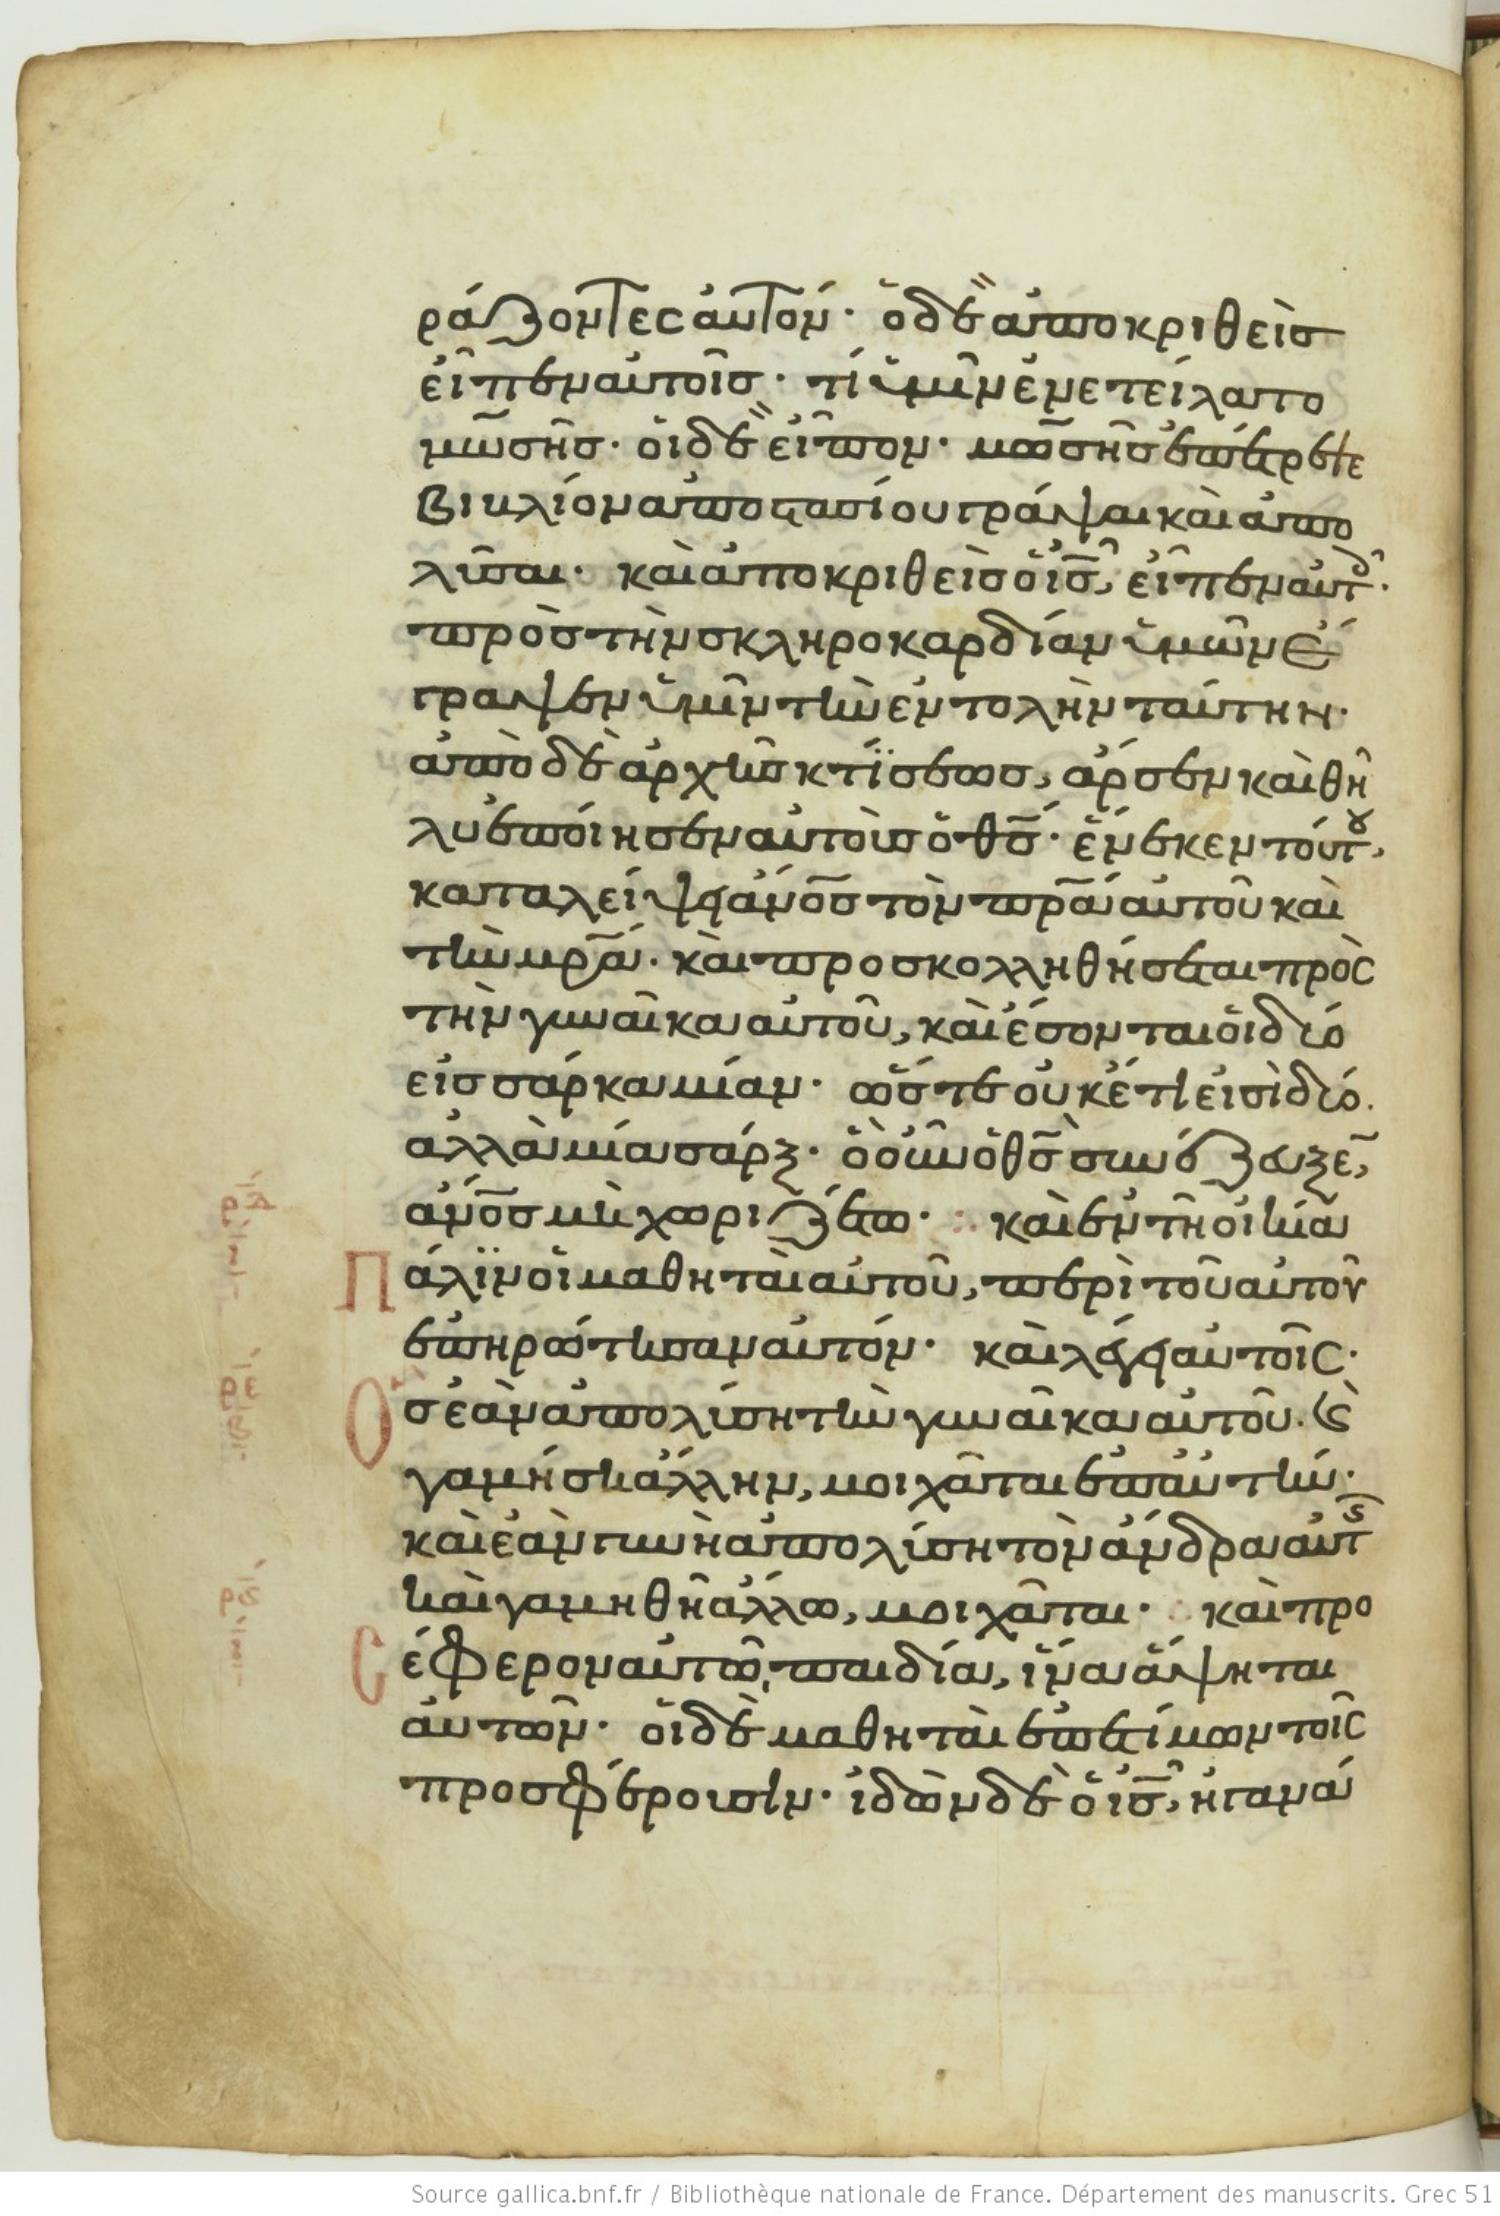 ράζοντες αὐτόν· ὁ δὲ ἀποκριθεὶσ
εἶπεν αὐτοῖσ· τί ὑμῖν ἐνετείλατο
μωσῆσ· οἱ δὲ εἶπον· μωσῆσ ἐπέτρεψε
βιβλίον ἀποστασίου γράψαι καὶ ἀπο
λῦσαι· καὶ ἀποκριθεὶσ ὁ ισ, εἶπεν αὐτοῖσ·
πρὸσ τὴν σκληροκαρδίαν ὑμῶν ἔ
γραψεν ὑμῖν τὴν ἐντολὴν ταύτην·
ἀπὸ δὲ ἀρχῆσ κτίσεωσ, ἄρσεν καὶ θῆ
λυ ἐποίησεν αὐτοὺσ ὁ θσ· ἕνεκεν τούτου,
καταλείψει ἄνοσ τὸν πρα αὐτοῦ καὶ
τὴν μρα· καὶ προσκολληθήσεται πρὸς
τὴν γυναῖκα αὐτοῦ, καὶ ἔσονται οἱ δύο
εἰσ σάρκα μίαν· ὥστε οὐκέτι εἰσὶ δύο.
ἀλλὰ μία σάρξ· ὃ οὖν ὁ θσ συνέζευξε,
ἄνοσ μὴ χωριζέτω· καὶ ἐν τῆ οἰκία
Πάλιν οἱ μαθηταὶ αὐτοῦ, περὶ τοῦ αὐτοῦ
ἐπηρώτησαν αὐτόν· καὶ λέγει αὐτοῖς·
Ὃσ ἐὰν ἀπολύση τὴν γυναῖκα αὐτοῦ. καὶ
γαμήση ἄλλην, μοιχᾶται ἐπ αὐτήν·
καὶ ἐὰν γυνὴ ἀπολύση τὸν ἄνδρα αὐτῆσ
καὶ γαμηθῆ ἄλλω, μοιχᾶται· καὶ προ
Σέφερον αὐτῶ, παιδία, ἵνα ἅψηται
αὐτῶν· οἱ δὲ μαθηταὶ ἐπετίμων τοῖς
προσφέρουσιν· ἰδὼν δὲ ὁ ισ, ἠγανά
Source gallica.bnf.fr / Bibliothèque nationale de France. Département des manuscrits. Grec 51